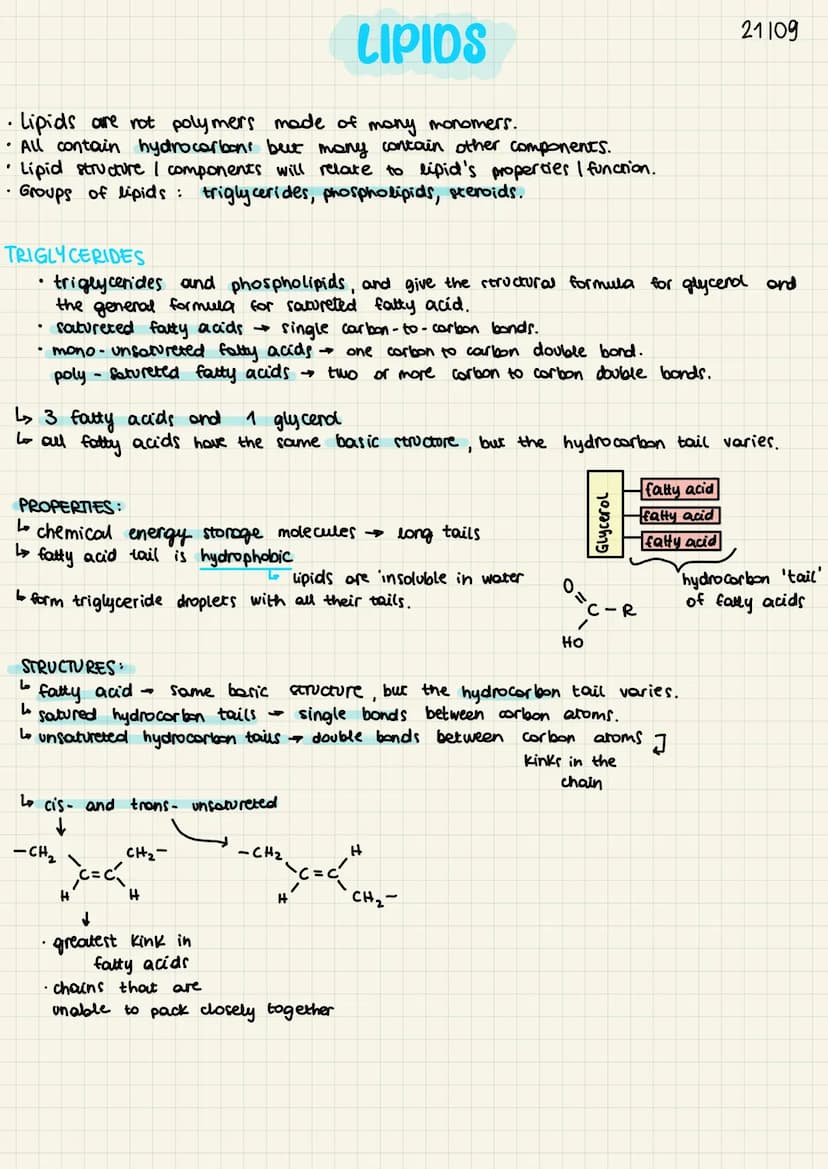 LIPIDS
21|09
· Lipids are not polymers made of many monomers.
· All contain hydrocarbons but many contain other components.
· Lipid structure / components will relate to lipid's properties / function.
· Groups of lipids : triglycerides, phospholipids, steroids.
TRIGLYCERIDES
· triglycerides and phospholipids, and give the structural formula for glycerol and
the general formula for satureted fatty acid.
· satureted fatty acids → single carbon-to-carbon bonds.
· mono-unsatureted fatty acids → one carbon to carbon double bond.
poly - satureted fatty acids → two or more carbon to carbon double bonds.
↳ 3 fatty acids and 1 glycerol
↳ all fatty acids have the same basic structure, but the hydrocarbon tail varies.
PROPERTIES:
↳ chemical energy storage molecules → long tails
↳ fatty acid tail is hydrophobic
↳ lipids are insoluble in water
↳ form triglyceride droplets with all their tails.
Glycerol
fatty acid
fatty acid
fatty acid
hydrocarbon 'tail'
of fatty acids
O
C - R
HO
STRUCTURES:
↳ fatty acid → same basic structure, but the hydrocarbon tail varies.
↳ satured hydrocarbon tails → single bonds between carbon atoms.
↳ unsatureted hydrocarbon tails → double bonds between carbon atoms
kinks in the
chain
↳ cis- and trans- unsatureted
-CH₂ CH₂-
C=C
H H
-CH₂ H
C=C
H CH₂-
· greatest kink in
fatty acids
· chains that are
unable to pack closely together